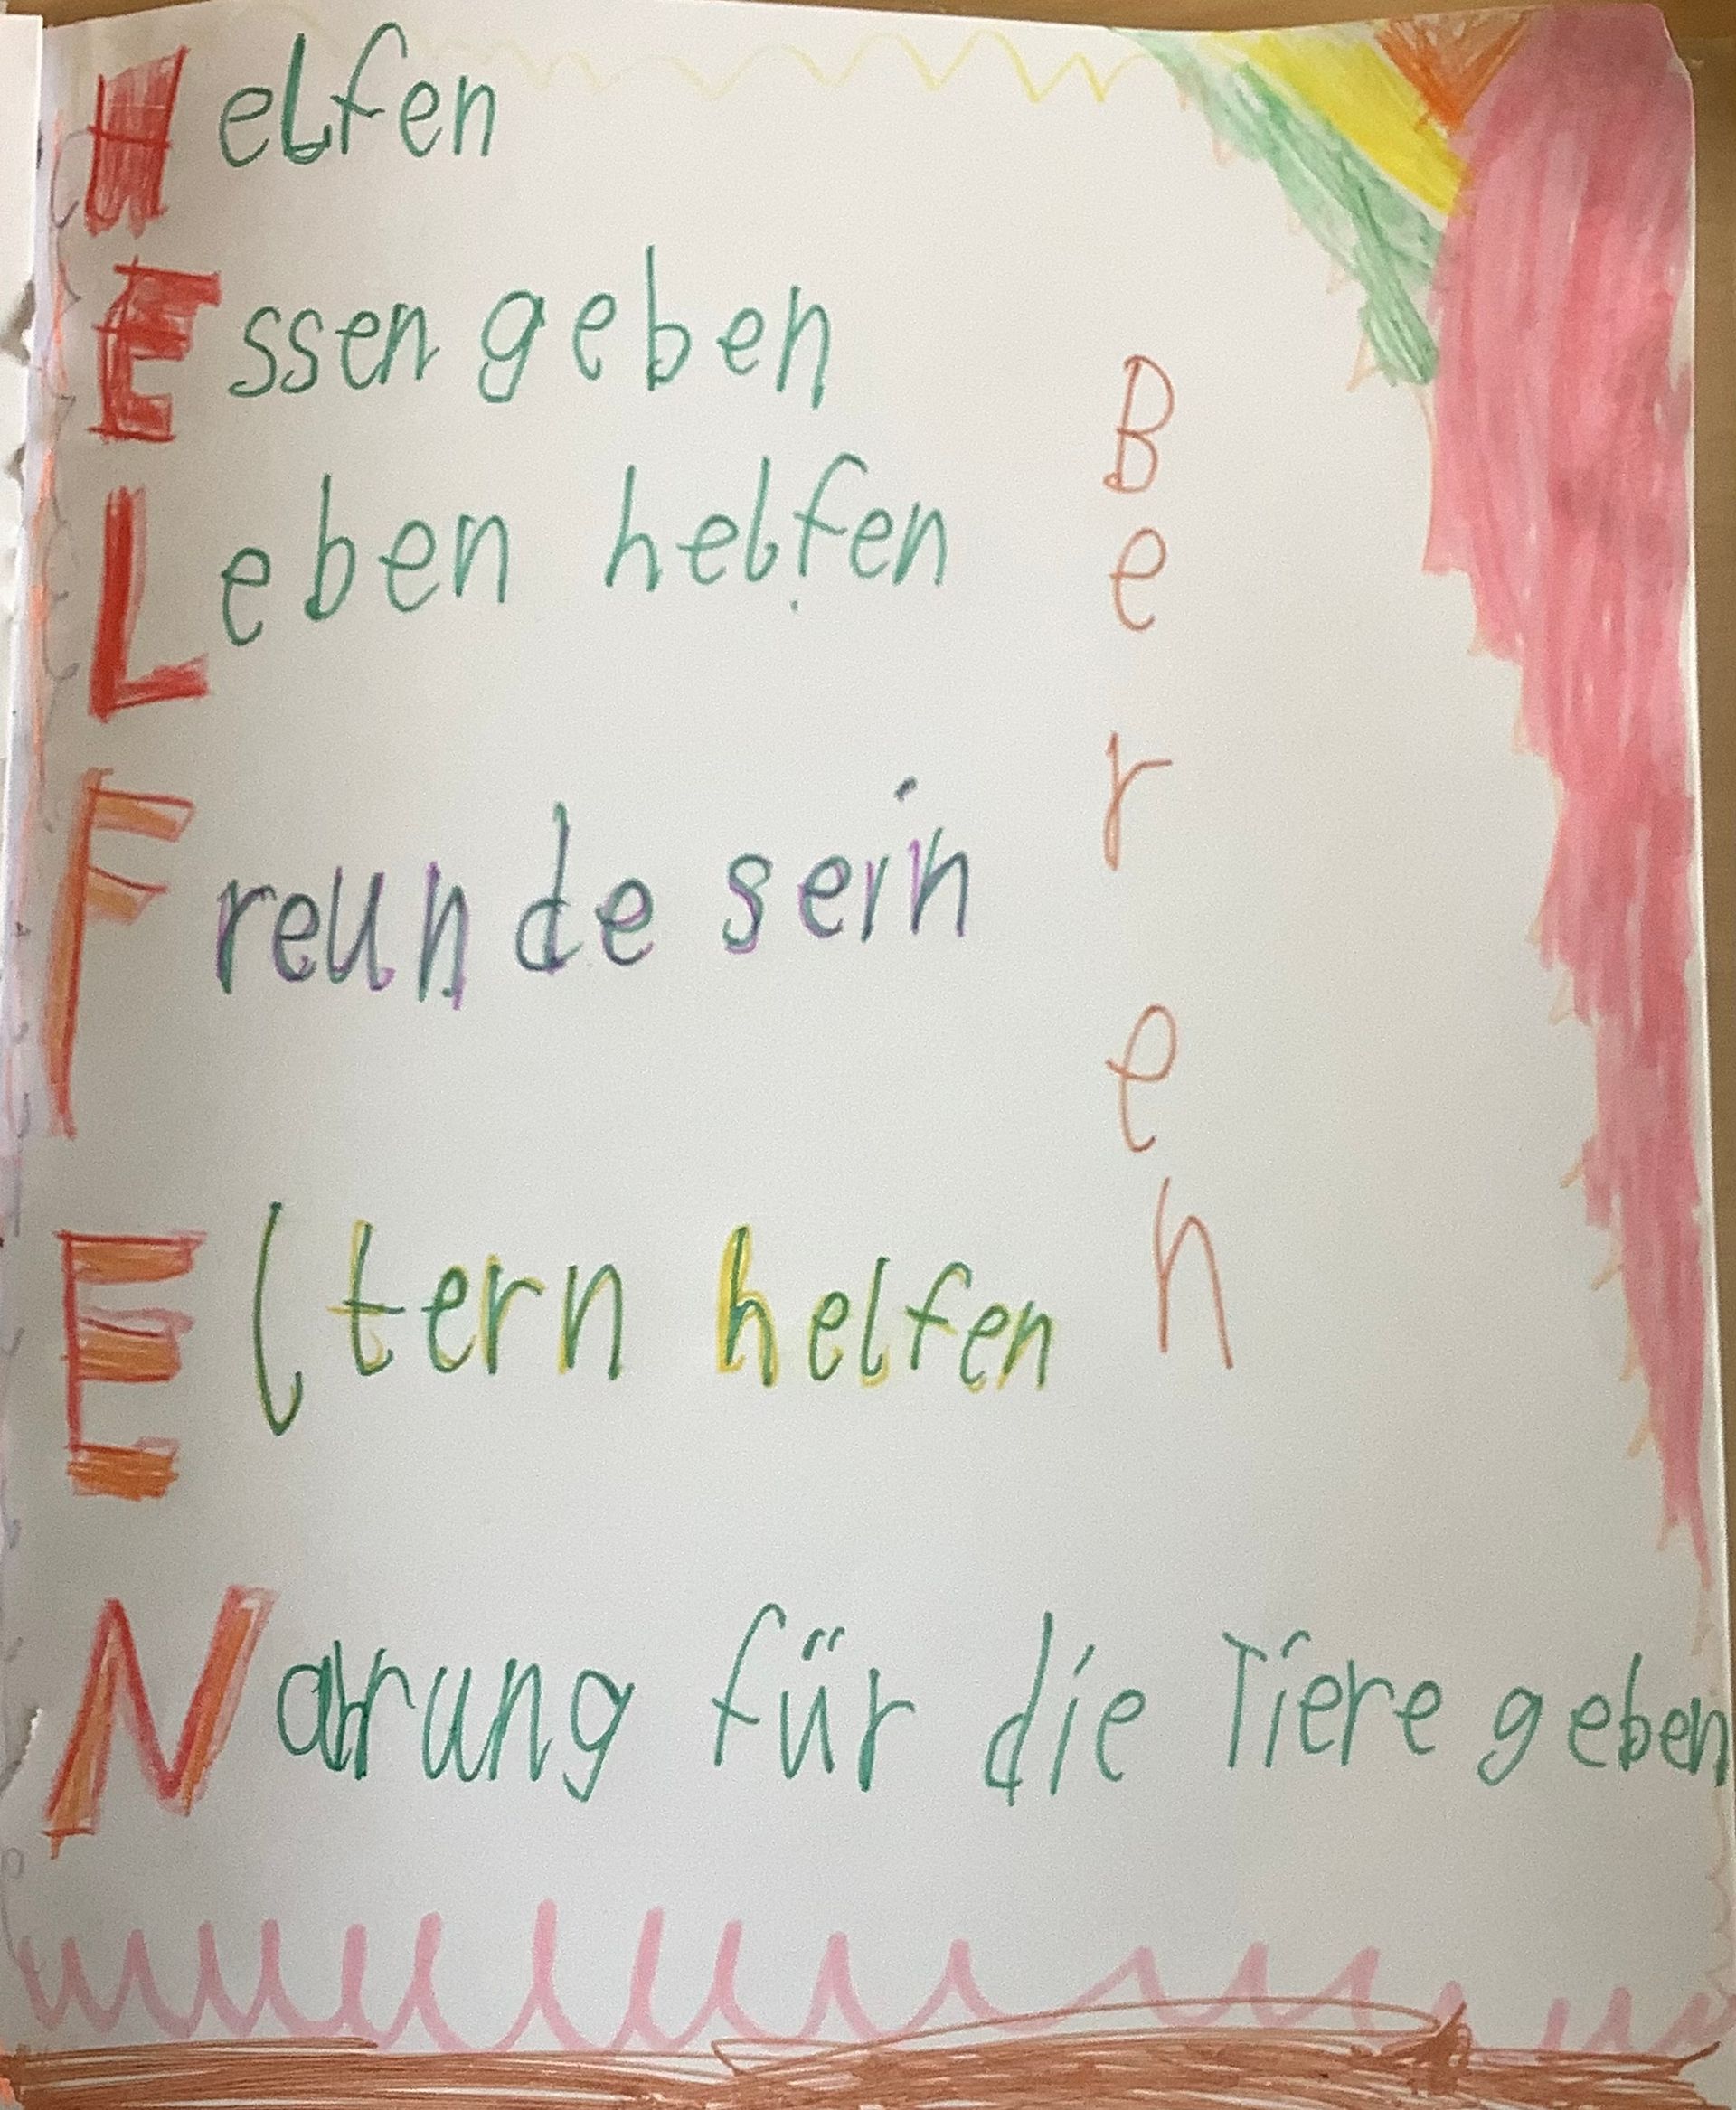 Helfen
Essen geben
Leben helfen
Freunde sein
Eltern helfen
Nahrung für die Tiere geben
Beren